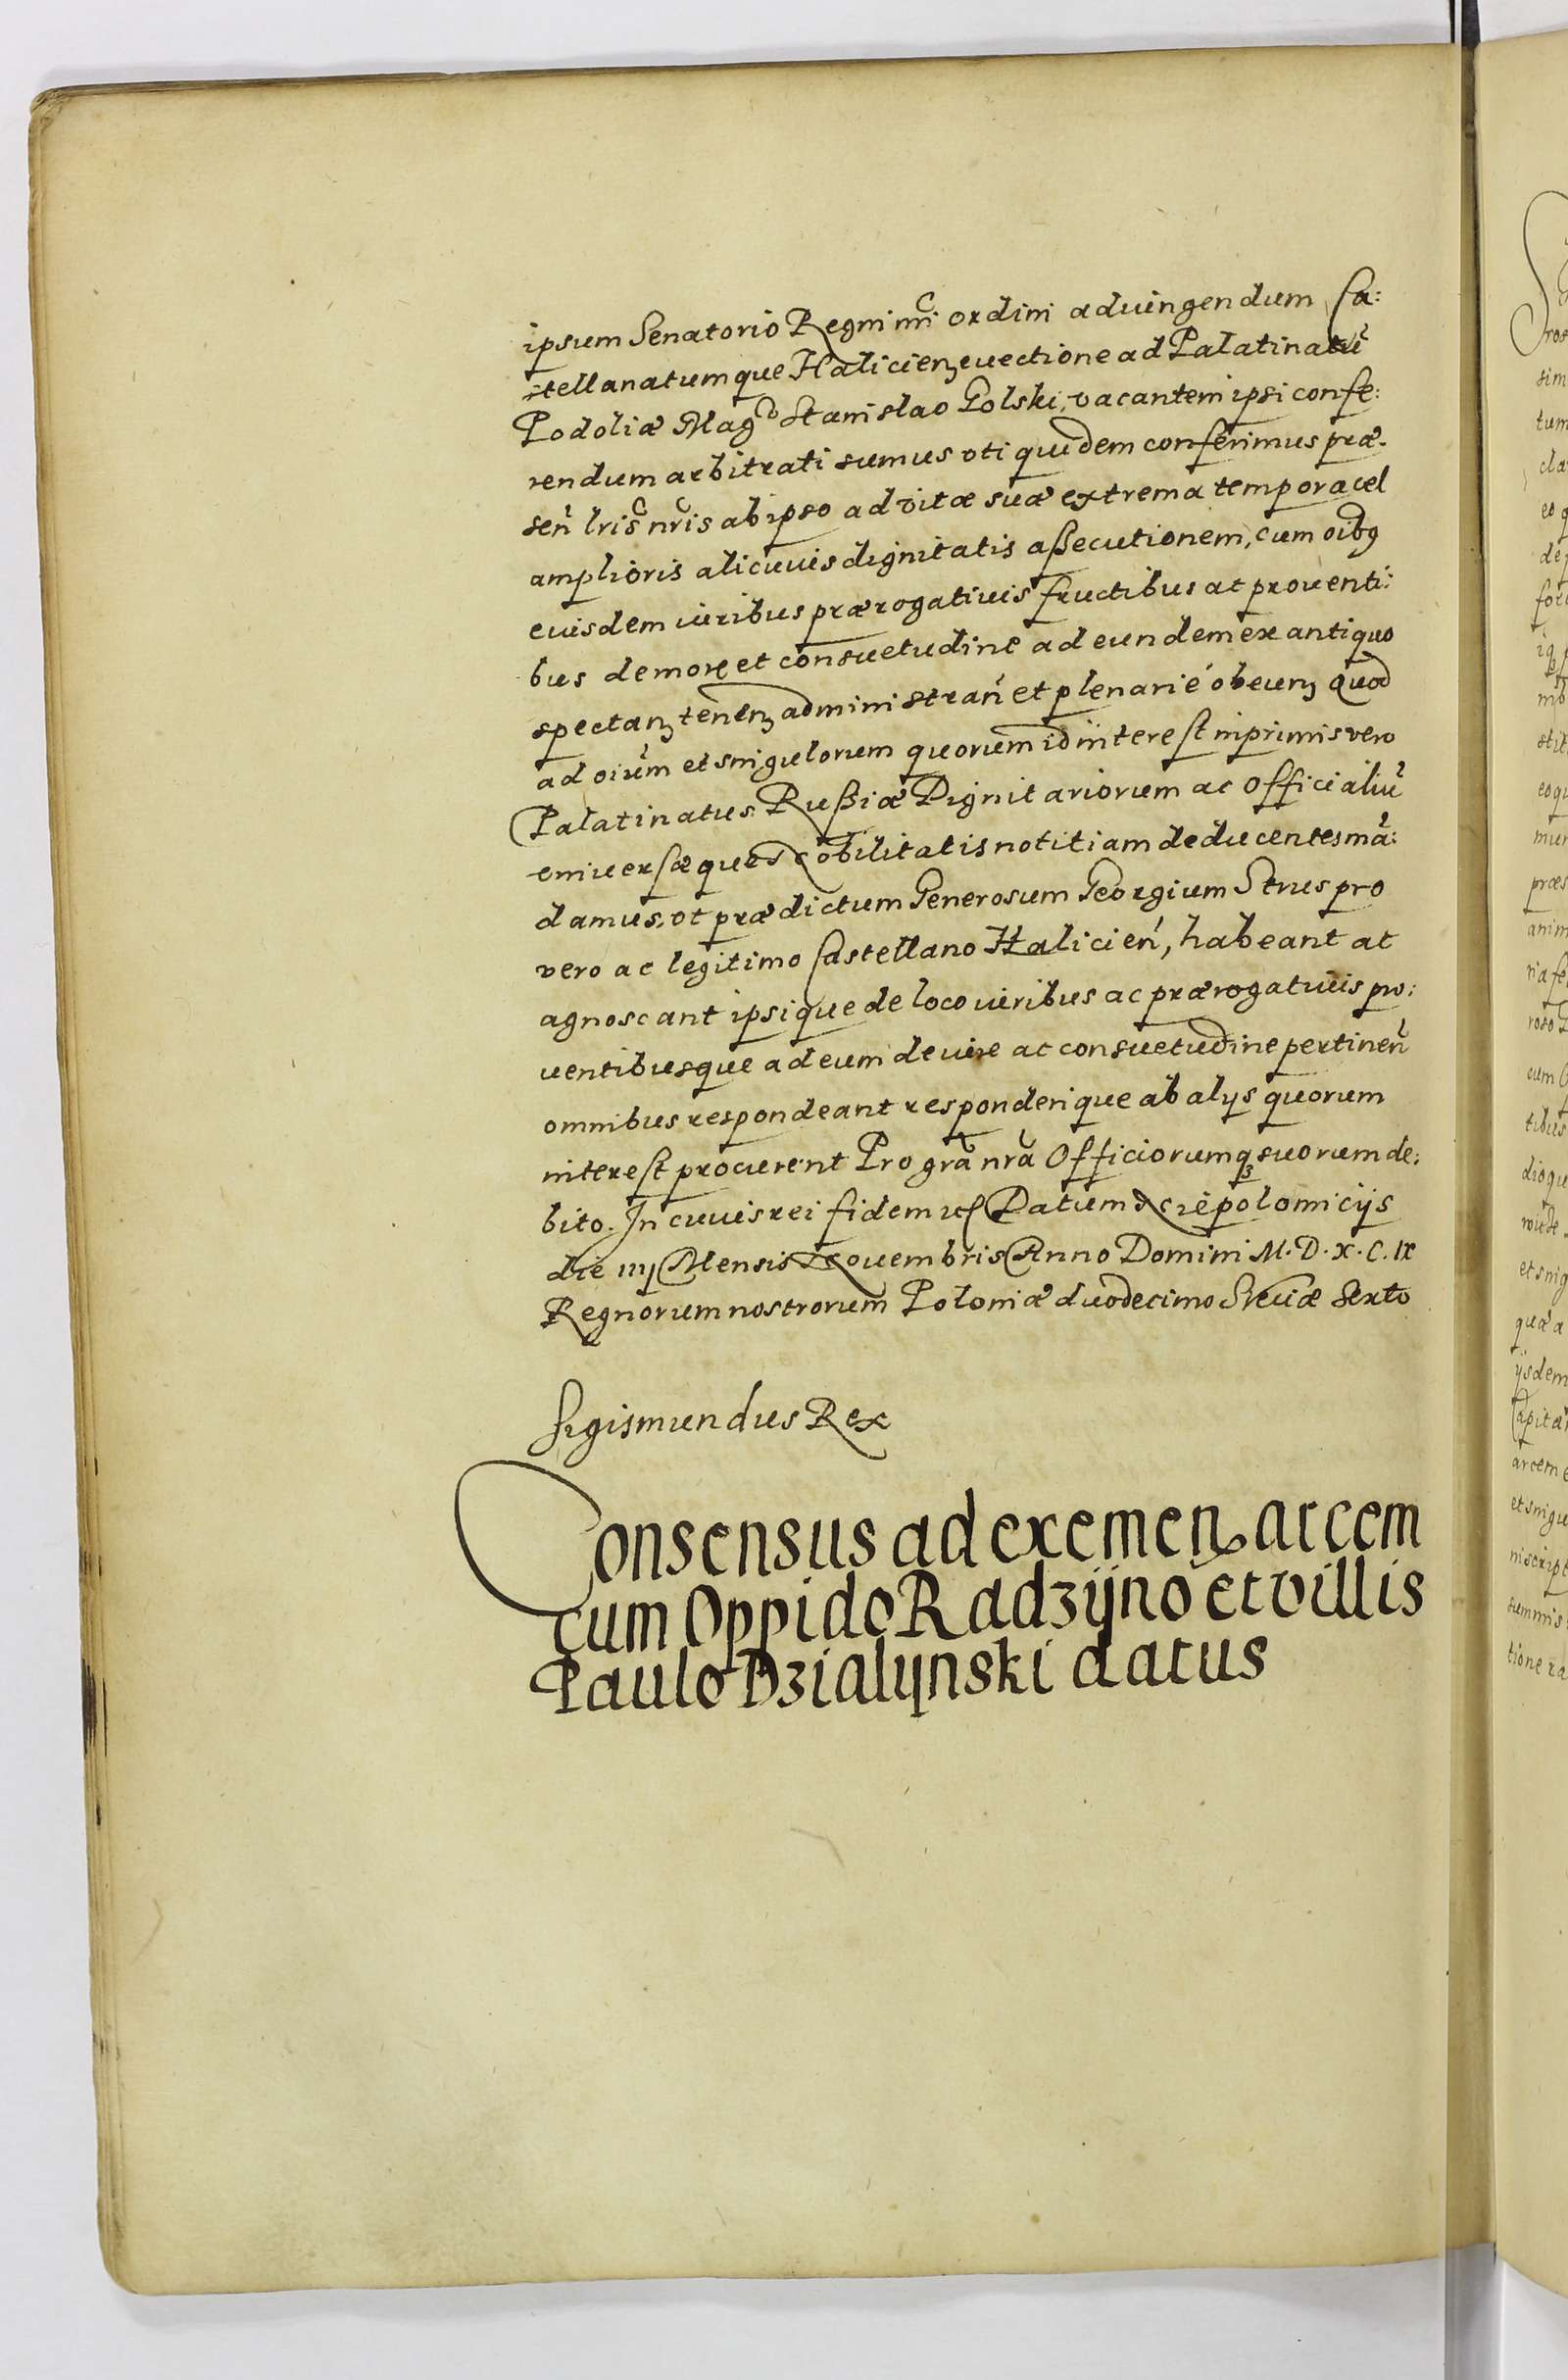 ipsum Senatorio Regni nri ordini adiungendum Ca:
stellanatumque Halicien euectione ad Palatinatũ
Podoliæ Mag Stanislao Golski, vacantem ipsi confe:
rendum arbitrati sumus vti quidem conferimus præ:
sen̄ lris nris ab ipso ad vitæ suæ extrema tempora vel
amplioris alicuius dignitatis aßecutionem, cum oibꝯ
euisdem iuribus prærogatiuis fructibus ac prouenti:
bus de more et consuetudine ad eundem ex antiquo
spectan tenen administran̄ et plenarié obeun quod
ad oiũm et singulorum quorum id interest inprimis vero
Palatinatus Rußiæ Dignitariorum ac Officialiũ
vniuersæque Nobilitatis notitiam deducentes mã:
damus, vt prædictum Generosum Georgium Strus pro
vero ac legitimo Castellano Halicien̄, habeant ac
agnoscant ipsique de loco iuribus ac prærogatiuis pro:
uentibusque ad eum de iure ac consuetudine pertinen̄
omnibus respondeant responderique ab alijs quorum
interest procurent Pro gra nra Officiorumq; suorum de:
bito. In cuius rei fidem Datum Niepolomicijs
die iiij Mensis Nouembris Anno Domini M. D. X. C. IX
Regnorum nostrorum Poloniæ duodecimo Sueciæ Sexto
Sigismundus Rex
Consensus ad exemen arcem
cum Oppido Radzÿno et villis
Paulo Dzialÿnski datus